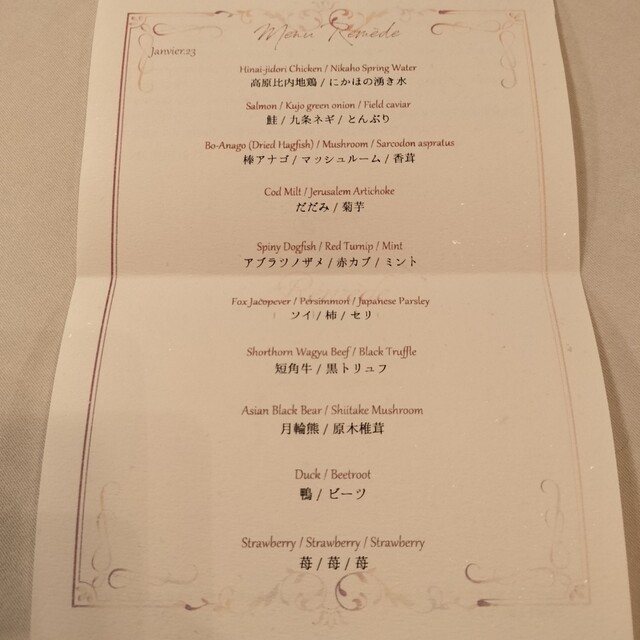 Menu Remède
Janvier.23
Hinai-jidori Chicken / Nikaho Spring Water
高原比内地鶏 / にかほの湧き水
Salmon / Kujo green onion / Field caviar
鮭 / 九条ネギ / とんぶり
Bo-Anago (Dried Hagfish) / Mushroom / Sarcodon aspratus
棒アナゴ / マッシュルーム / 香茸
Cod Milt / Jerusalem Artichoke
だだみ / 菊芋
Spiny Dogfish / Red Turnip / Mint
アブラツノザメ / 赤カブ / ミント
Fox Jacopever / Persimmon / Japanese Parsley
ソイ / 柿 / セリ
Shorthorn Wagyu Beef / Black Truffle
短角牛 / 黒トリュフ
Asian Black Bear / Shiitake Mushroom
月輪熊 / 原木椎茸
Duck / Beetroot
鴨 / ビーツ
Strawberry / Strawberry / Strawberry
苺 / 苺 / 苺